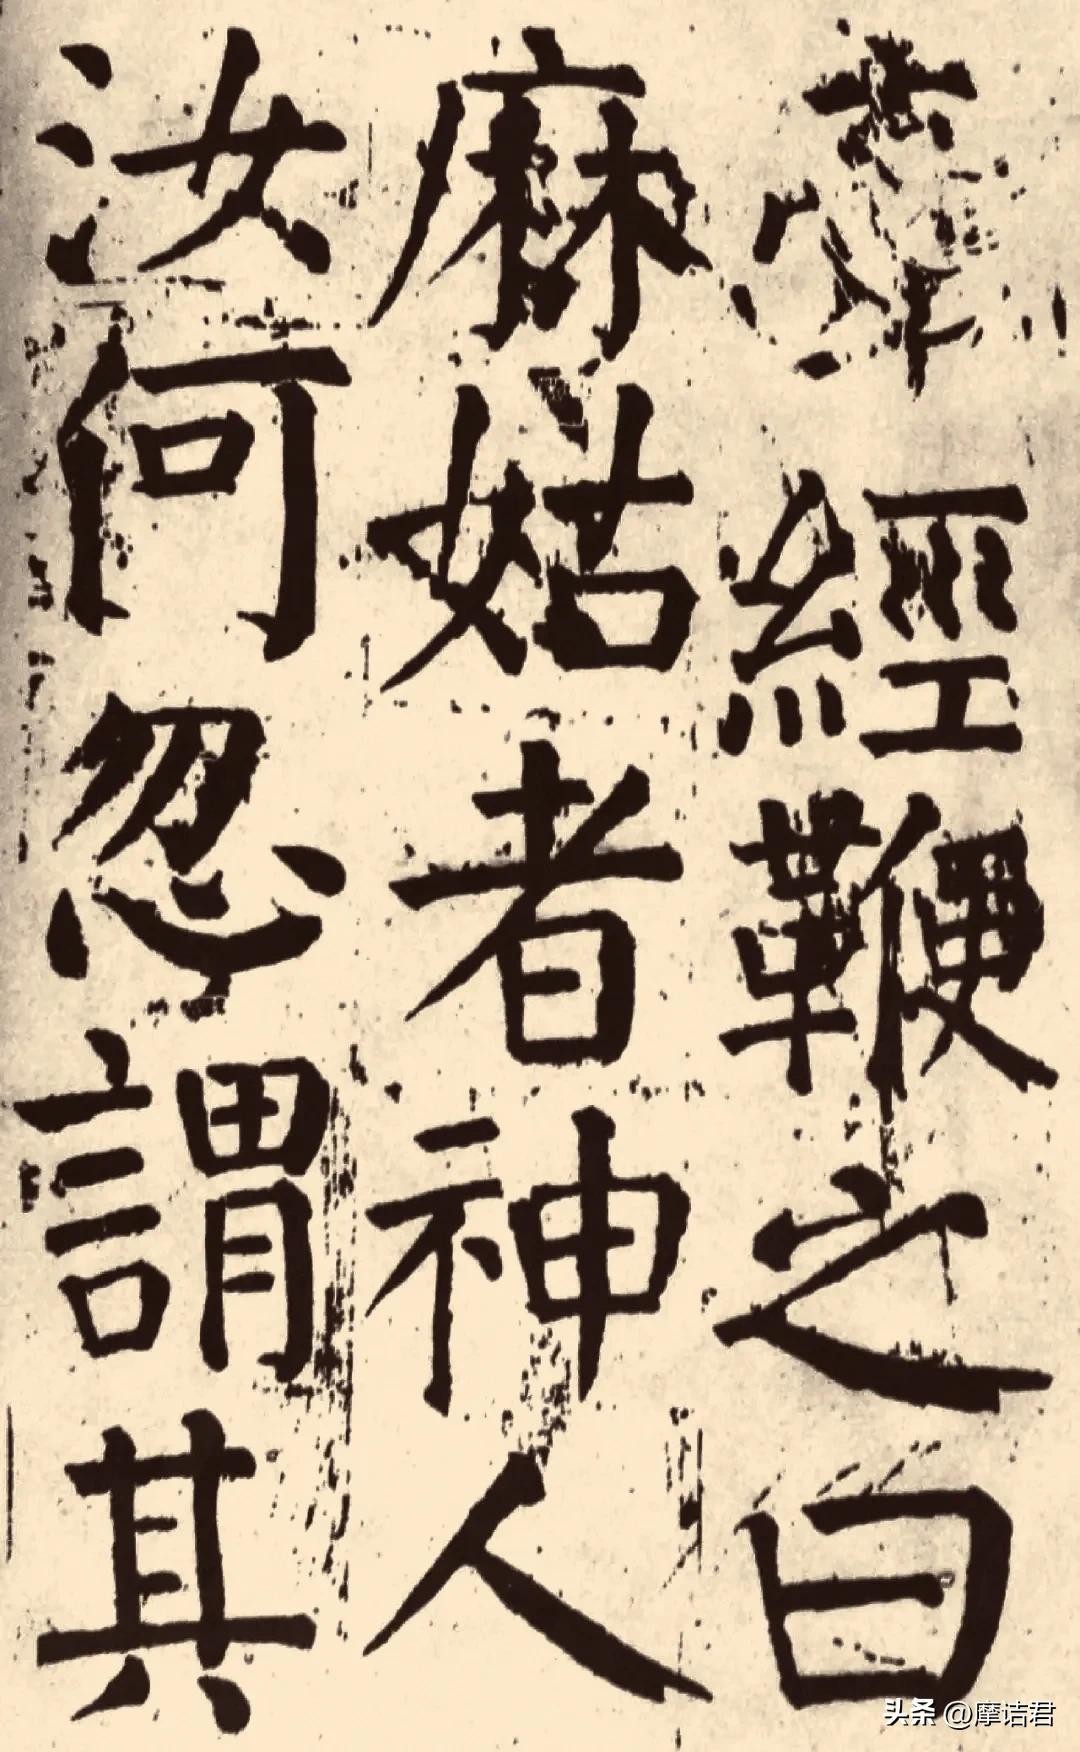 蔡經鞭之曰
麻姑者神人
汝何忽謂其
头条 @摩诘君